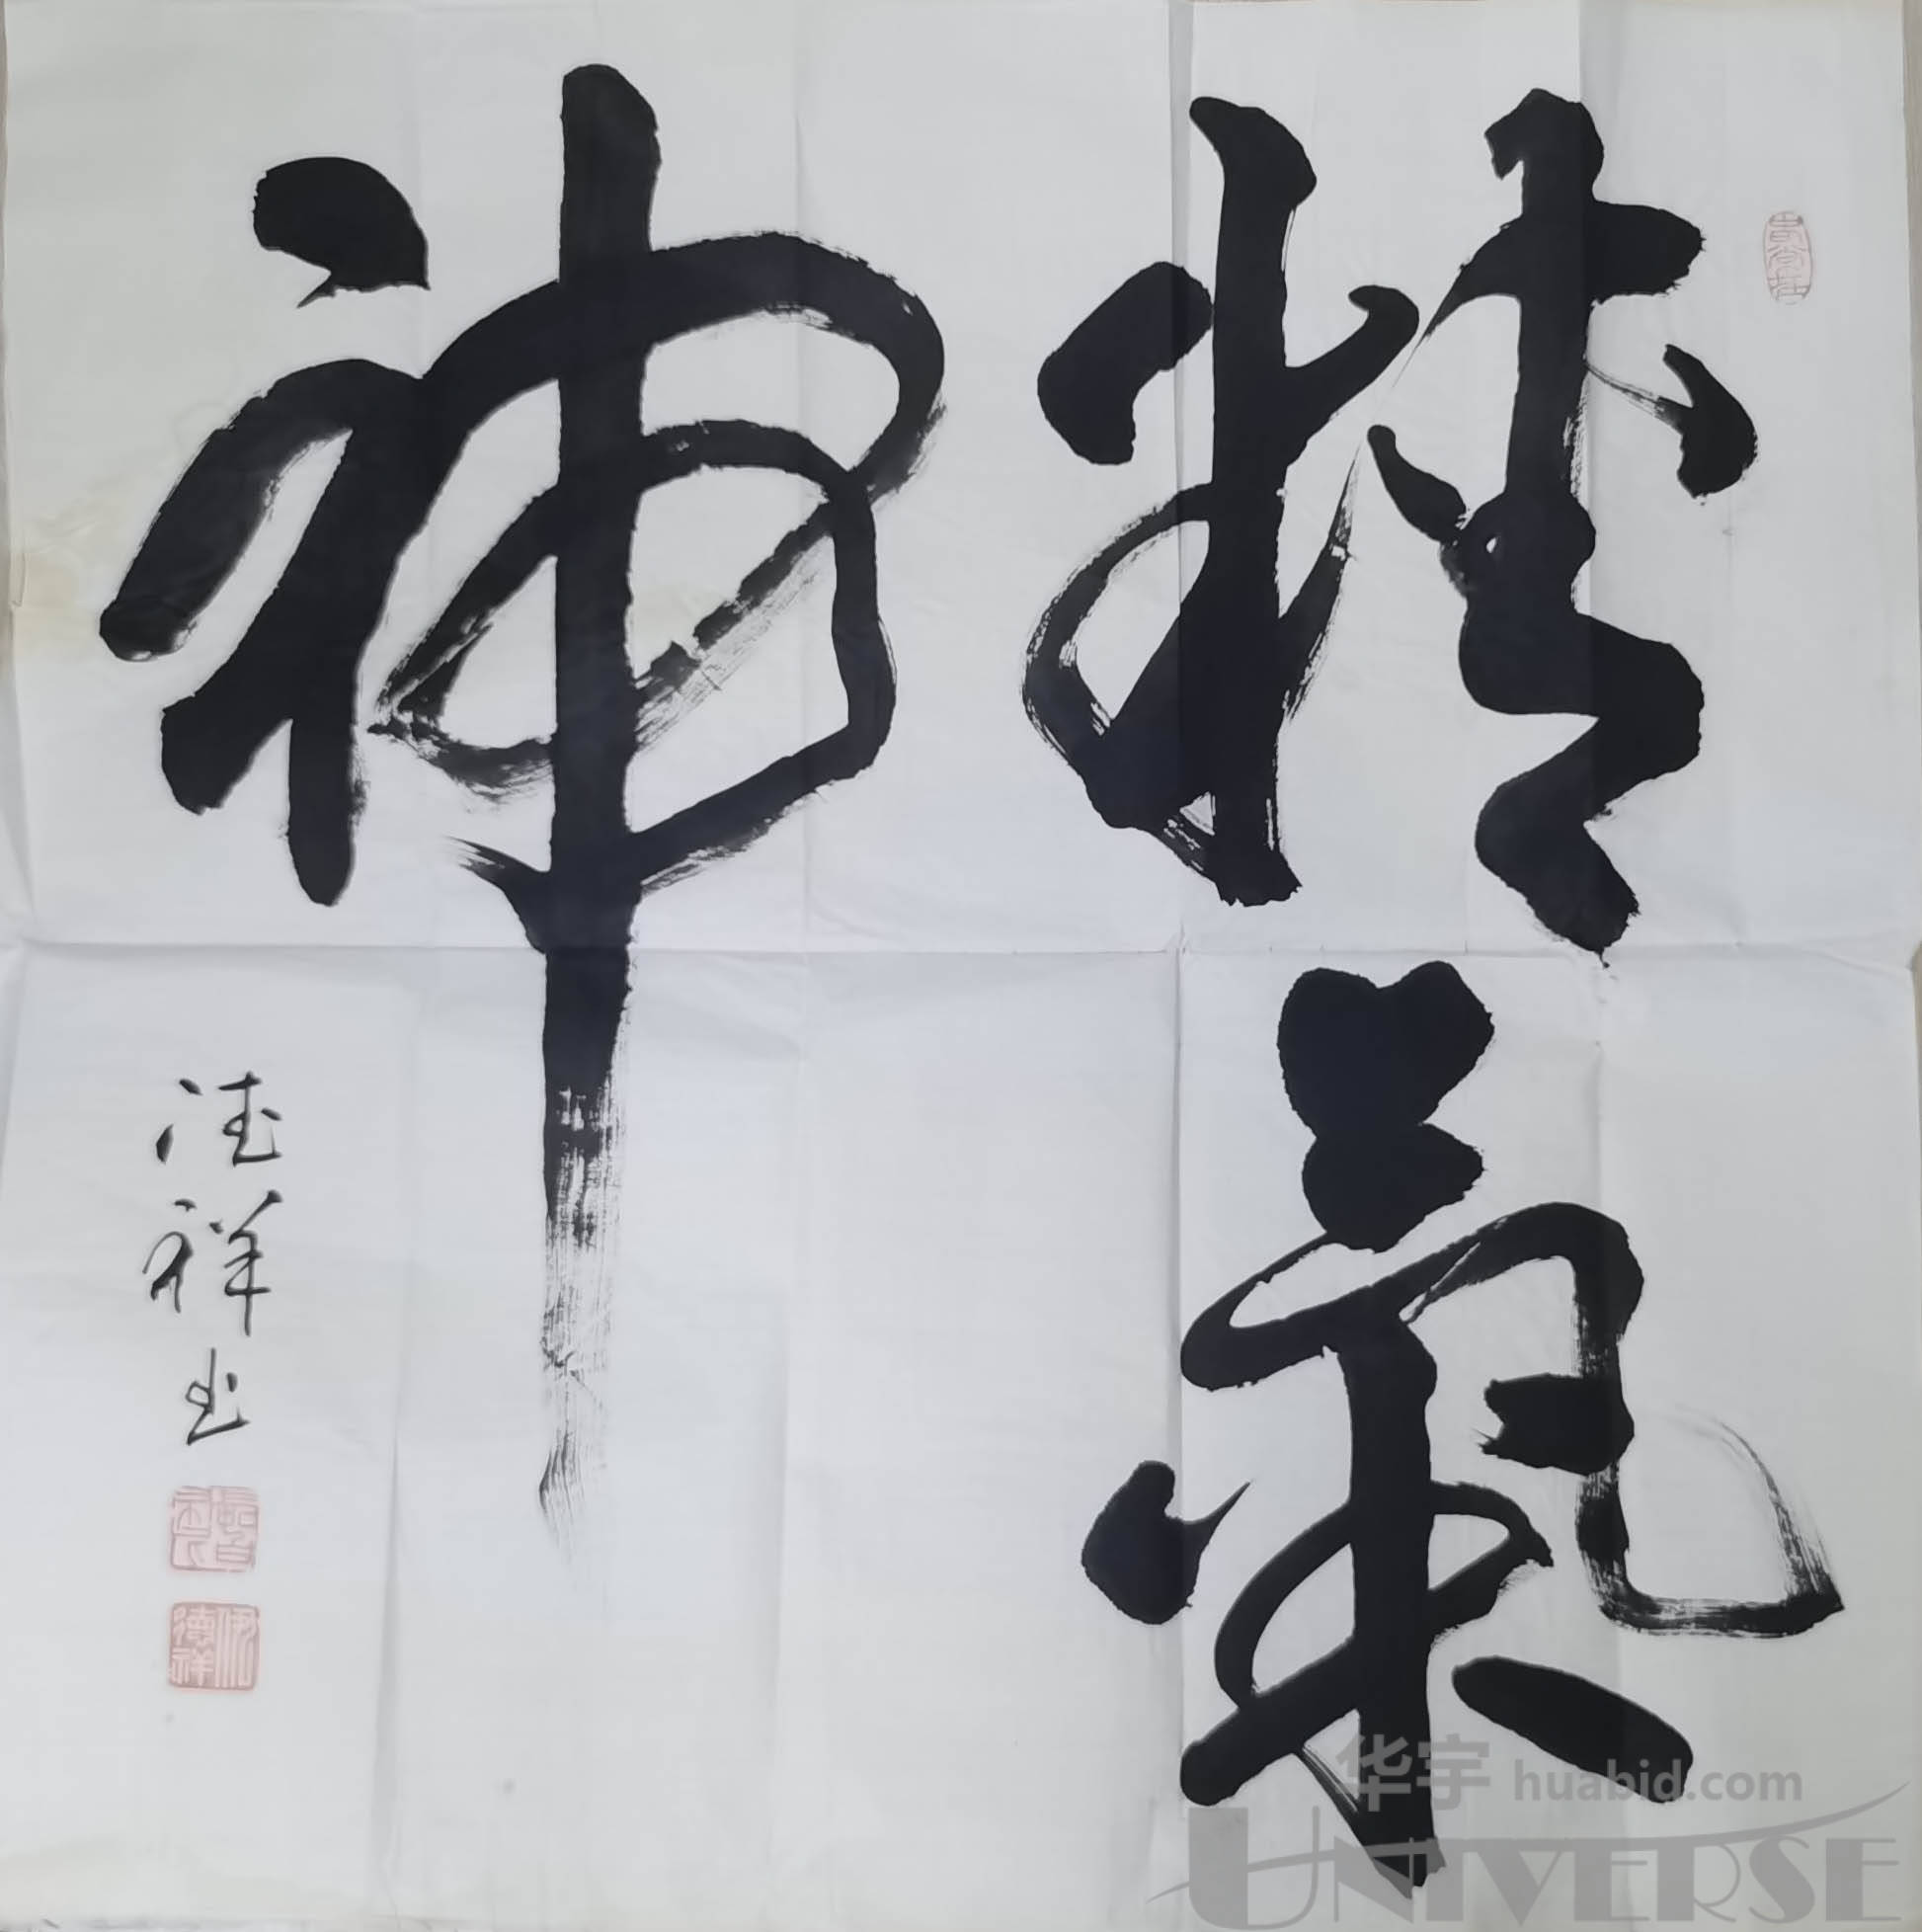 精氣
神
德祥书
德祥
华宇 huabid.com
UNIVERSE